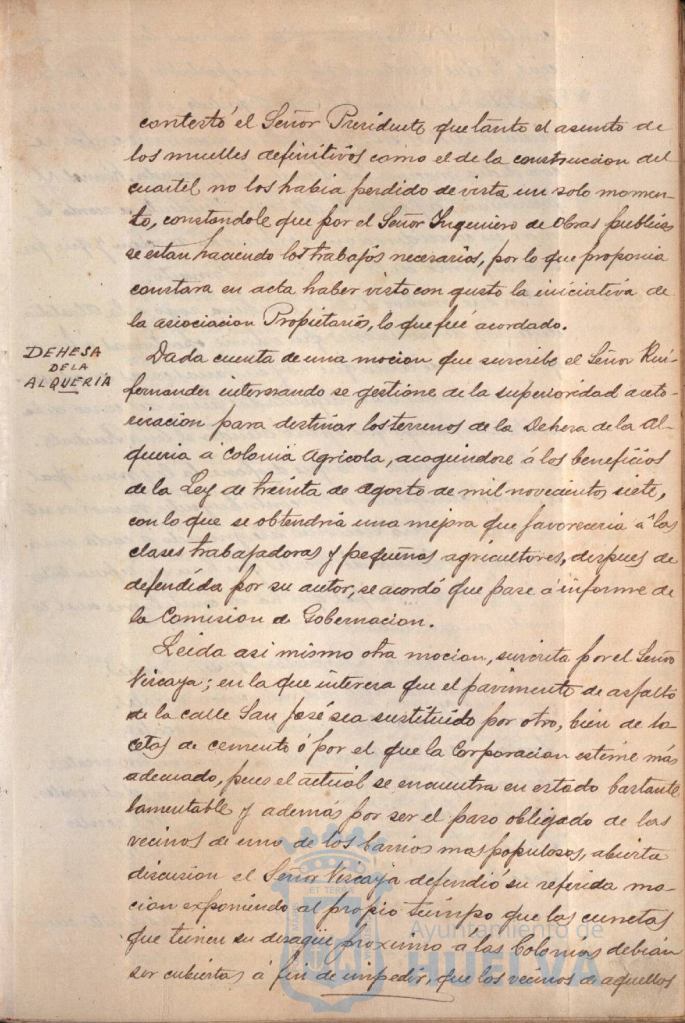 contestó el Señor Presidente que tanto el asunto de
los muelles definitivos como el de la construccion del
cuartel no los habia perdido de vista un solo momen-
to, constandole que por el Señor Ingeniero de Obras publicas
se estan haciendo los trabajos necesarios, por lo que proponia
constara en acta haber visto con gusto la iniciativa de
la asociacion Propietarios, lo que fué acordado.
DEHESA
DE LA
ALQUERÍA
Dada cuenta de una mocion que suscribe el Señor Rui-
fernandez interesando se gestione de la superioridad auto-
rizacion para destinar los terrenos de la Dehesa de la Al-
queria á Colonia Agricola, acogiendose á los beneficios
de la Ley de treinta de agosto de mil novecientos siete,
con lo que se obtendria una mejora que favoreceria á las
clases trabajadoras y pequeños agricultores, despues de
defendida por su autor, se acordó que pase á informe de
la Comision de Gobernacion.
Leida asi mismo otra mocion, suscrita por el Señor
Viscaya; en la que interesa que el pavimento de asfalto
de la calle San José sea sustituido por otro, bien de lo
cetas de cemento ó por el que la Corporacion estime más
adecuado, pues el actual se encuentra en estado bastante
lamentable y además por ser el paso obligado de los
vecinos de uno de los barrios mas populosos, abierta
discusion el Señor Viscaya defendió su referida mo-
cion exponiendo al propio tiempo que las cunetas
que tienen su desagüe proximo a las Colonias debian
ser cubiertas á fin de impedir, que los vecinos de aquellos
Ayuntamiento de
HUELVA